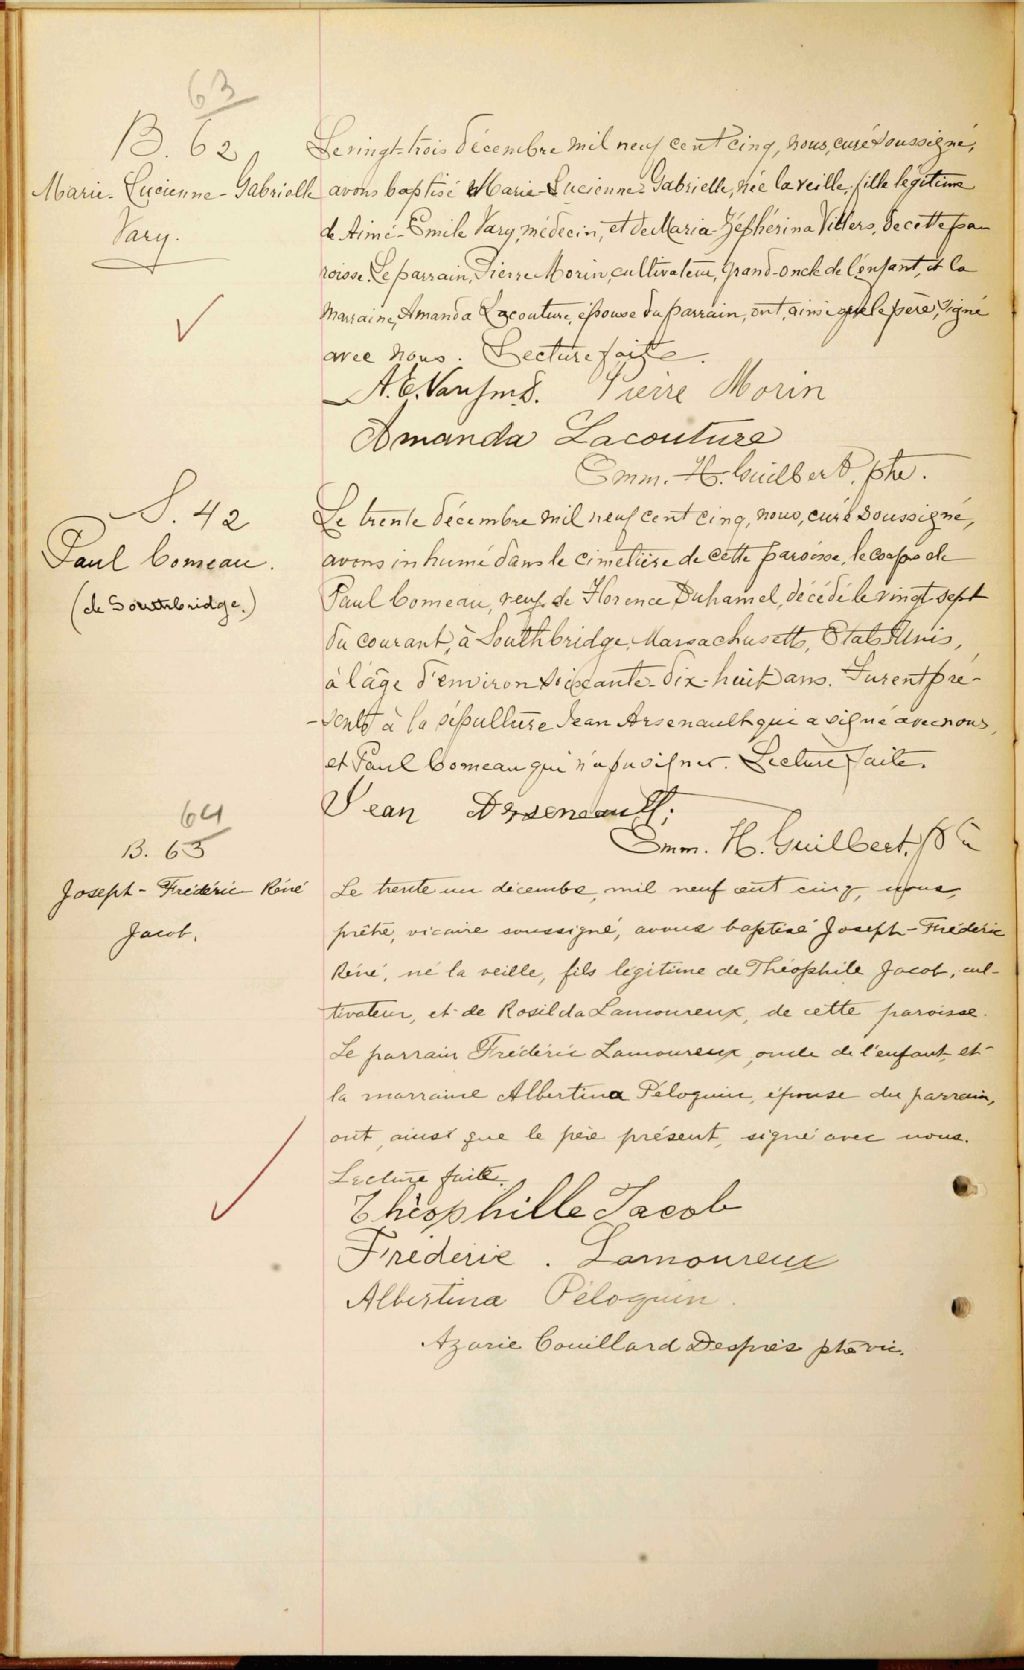 63
B. 62
Marie-Lucienne-Gabrielle
Vary.
Le vingt-trois décembre mil neuf cent cinq, nous, curé soussigné,
avons baptisé Marie-Lucienne-Gabrielle, née la veille, fille légitime
de Aimé-Emile Vary, médecin, et de Maria-Zéphérina Villers, de cette pa
roisse. Le parrain, Pierre Morin, cultivateur, grand-oncle de l'enfant, et la
marraine, Amanda Lacouture, épouse du parrain, ont, ainsi que le père, signé
avec nous. Lecture faite.
A. E. Vary m.d. Pierre Morin
Amanda Lacouture
Emm. H. Guilbert, ptre.
S. 42
Paul Comeau.
(de Southbridge.)
Le trente décembre mil neuf cent cinq, nous, curé soussigné,
avons inhumé dans le cimetière de cette paroisse, le corps de
Paul Comeau, veuf de Florence Duhamel, décédé le vingt-sept
du courant, à Southbridge, Massachusetts, Etats Unis,
à l'âge d'environ soixante-dix-huit ans. Furent pré-
-sents à la sépulture Jean Arsenault qui a signé avec nous,
et Paul Comeau qui n'a pu signer. Lecture faite.
Jean Arseneault;
Emm. H. Guilbert, ptre
64
B. 63
Joseph-Frédéric Réné
Jacob.
Le trente un décembre, mil neuf cent cinq, nous,
prêtre, vicaire soussigné, avons baptisé Joseph-Frédéric
Réné, né la veille, fils légitime de Théophile Jacob, cul-
tivateur, et de Rosilda Lamoureux, de cette paroisse.
Le parrain Frédéric Lamoureux, oncle de l'enfant, et
la marraine Albertina Péloquin, épouse du parrain,
ont, ainsi que le père présent, signé avec nous.
Lecture faite.
Théophille Jacob
Fréderic. Lamoureux
Albertina Péloquin.
Azarie Couillard Després ptre vic.